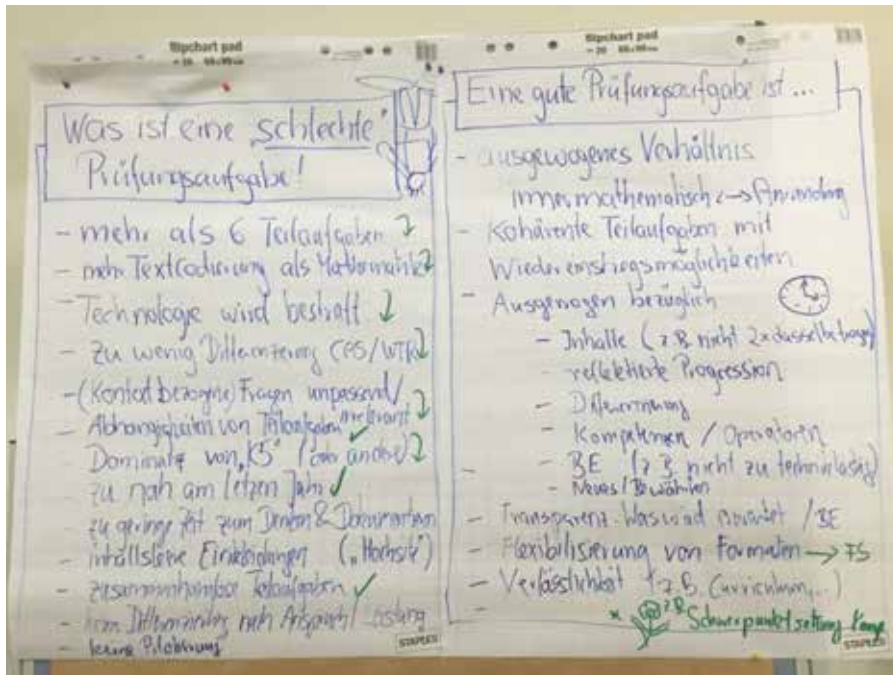 flipchart pad
Was ist eine "schlechte"
Prüfungsaufgabe!
- mehr als 6 Teilaufgaben
- mehr Textcodierung als Mathematik
- Technologie wird bestraft
- zu wenig Differenzierung (CAS/WTR)
- (Kontextbezogene) Fragen unpassend/
irrelevant
- Abhängigkeiten von Teilaufgaben ✓
- Dominanz von "K5" (oder andere)
zu nah am letzten Jahr ✓
zu geringe Zeit zum Denken & Dokumentieren
- inhaltsleere Einkleidungen
- zusammenhanglose Teilaufgaben ✓
- kein Differenzierung nach Anspruch/Leistung
- keine Pilotierung
STAPLES
flipchart pad
Eine gute Prüfungsaufgabe ist ...
- ausgewogenes Verhältnis
innermathematisch <-> Anwendung
- Kohärente Teilaufgaben mit
Wiedereinstiegsmöglichkeiten
- Ausgewogen bezüglich
- Inhalte (z.B. nicht 2x dasselbe
- reflektierte Progression
- Differenzierung
- Kompetenzen / Operatoren
- BE (z.B. nicht zu
- Neues / Bewährtes
- Transparenz: Was wird erwartet / BE
- Flexibilisierung von Formaten → FS
- Verlässlichkeit (z.B. Curriculum, ...)
-
* z.B. Schwerpunktsetzung
STAPLES